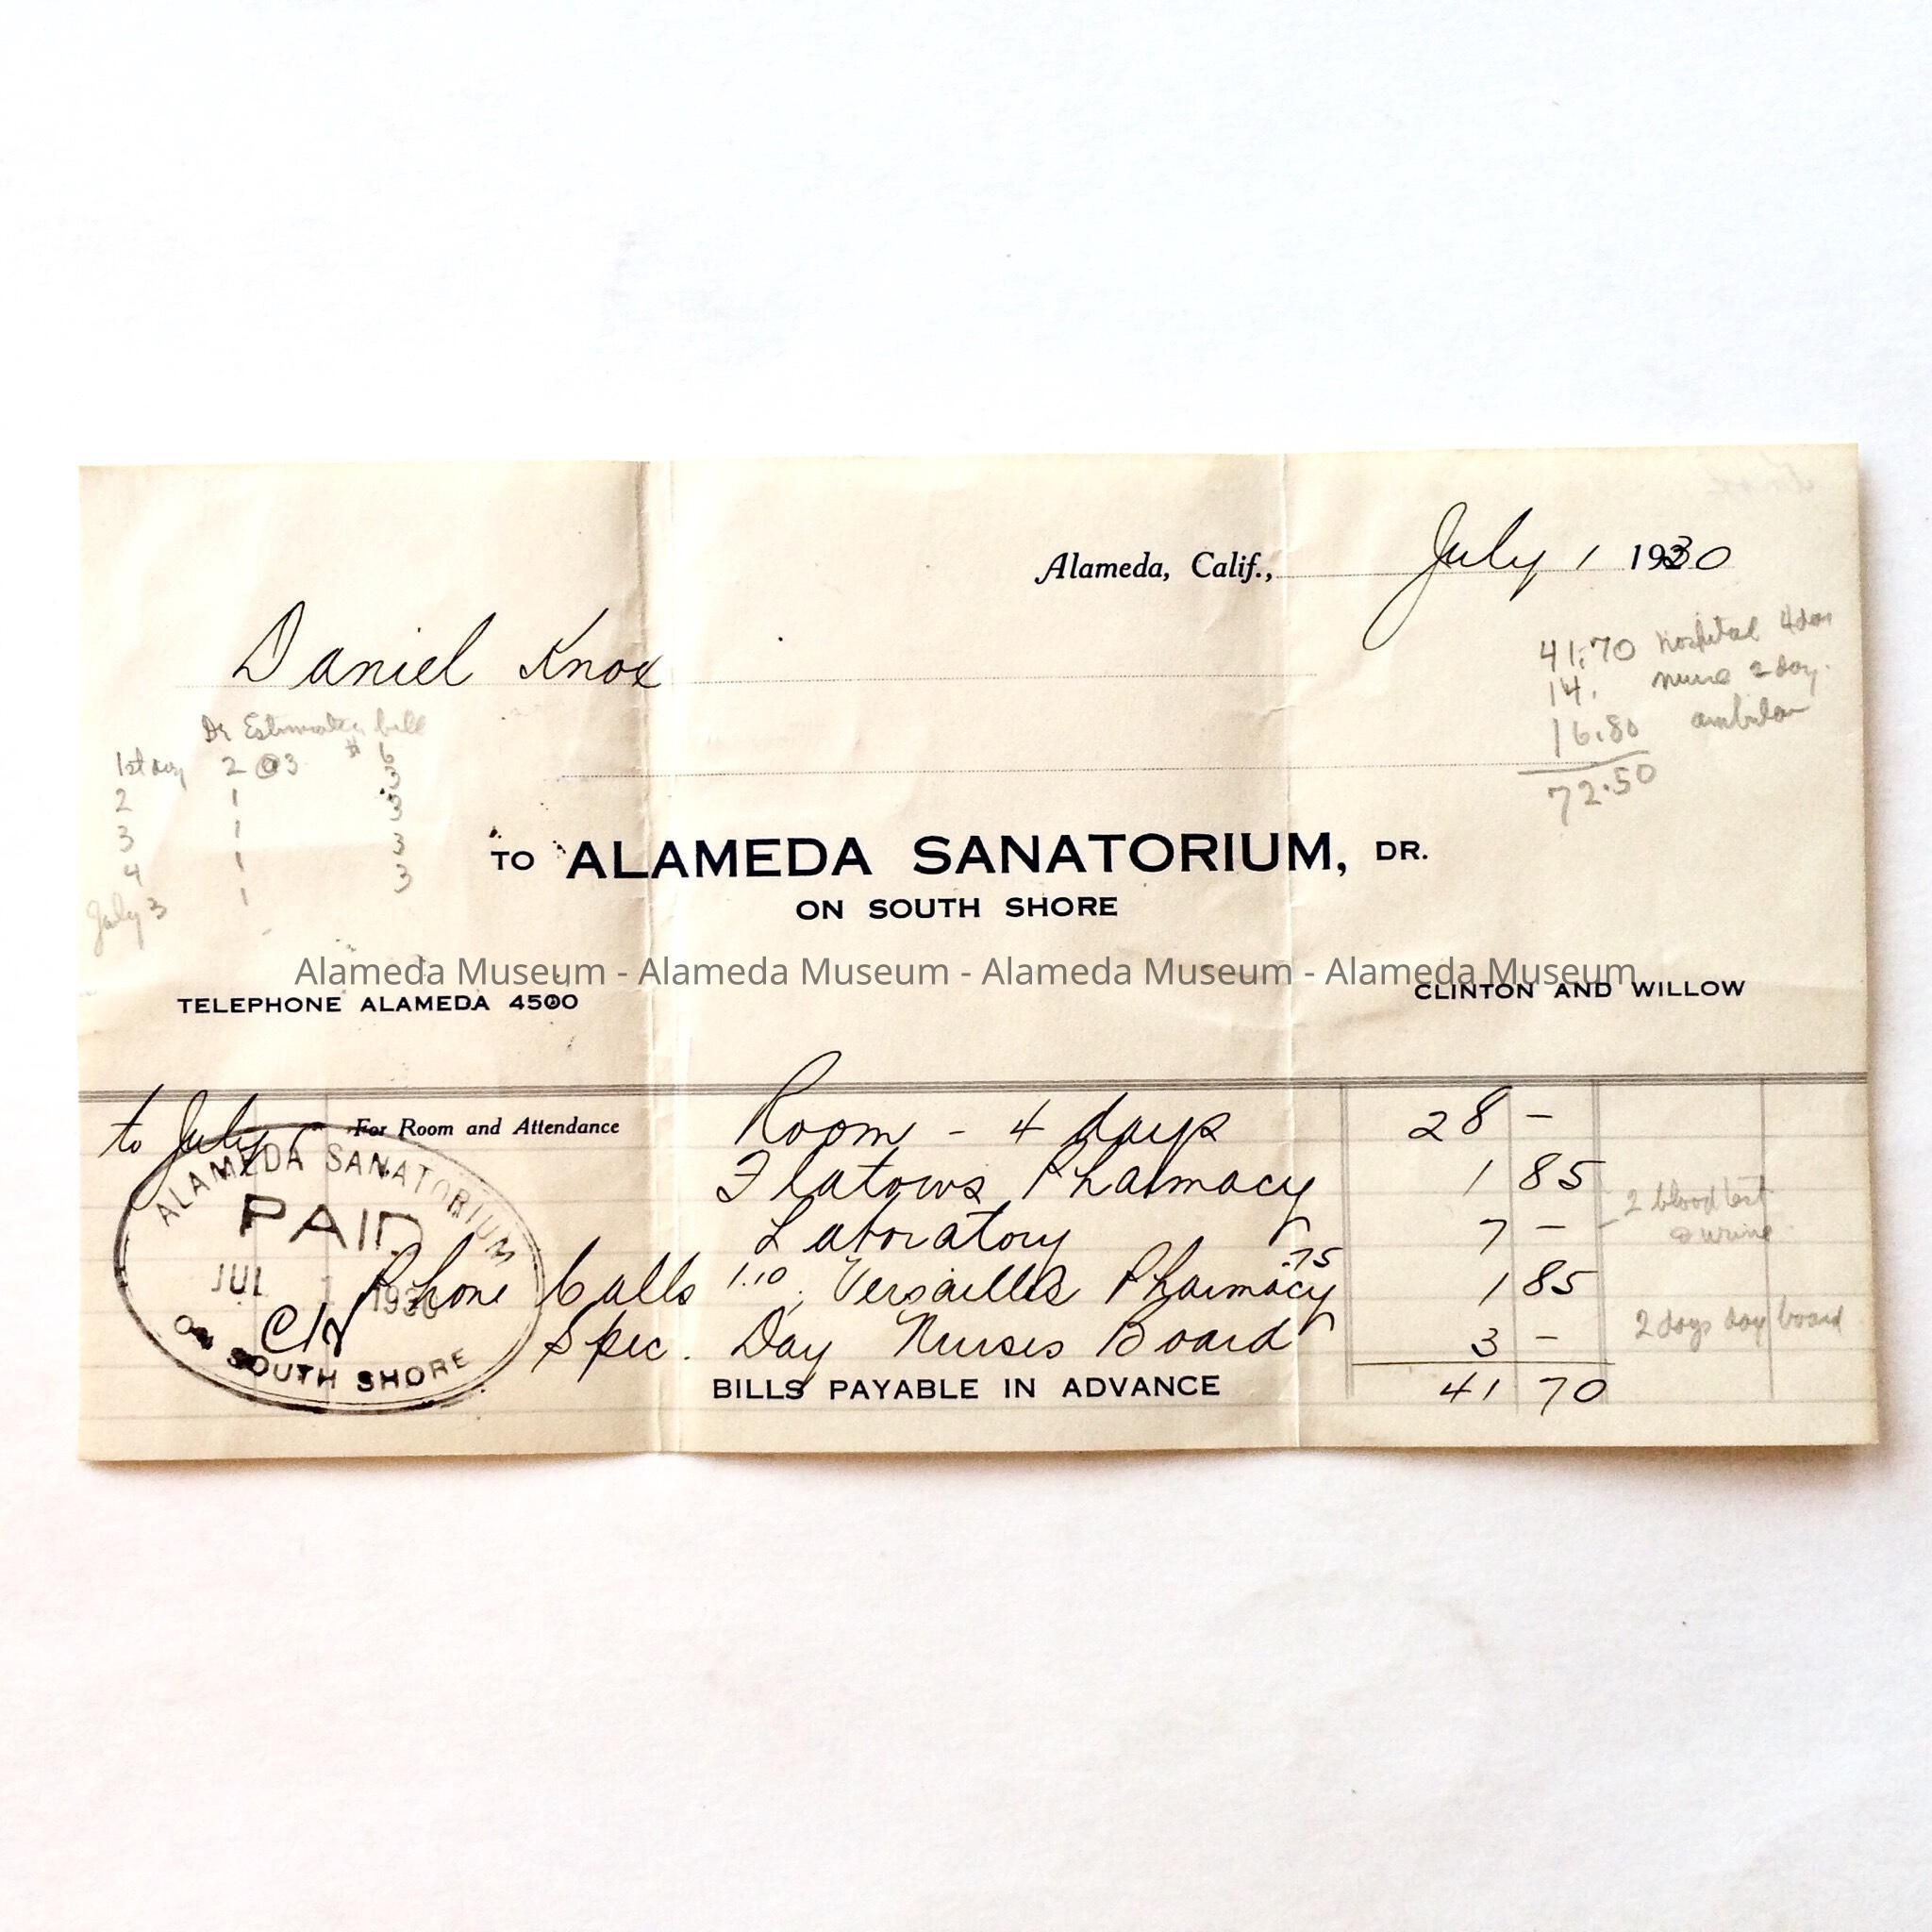 Alameda, Calif., July 1 1930
Daniel Knox
41.70 hospital 4 day
14. nurse 2 day.
16.80
72.50
Dr Estimate bill
1st day 2 @ 3 $ 6
2 1 3
3 1 3
4 1 3
July 3 1 3
TO ALAMEDA SANATORIUM, DR.
ON SOUTH SHORE
Alameda Museum - Alameda Museum - Alameda Museum - Alameda Museum
TELEPHONE ALAMEDA 4500
CLINTON AND WILLOW
to July 1 For Room and Attendance Room - 4 days 28 -
Flatows Pharmacy 1 85
Laboratory 7 - 2 blood test
urine
Phone Calls 1.10, Versailles Pharmacy .75 1 85
Spec. Day Nurses Board 3 - 2 days day board
BILLS PAYABLE IN ADVANCE 41 70
ALAMEDA SANATORIUM
PAID
JUL 1 1930
CH
ON SOUTH SHORE